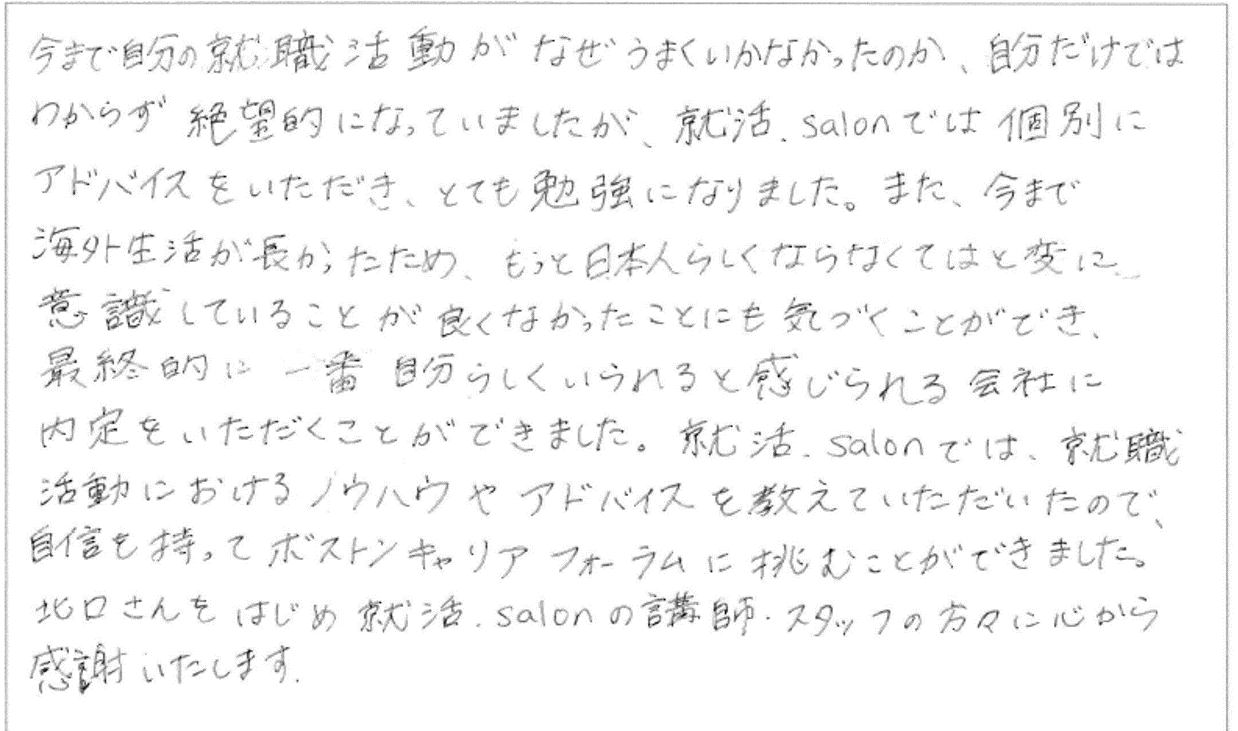 今まで自分の就職活動がなぜうまくいかなかったのか、自分だけでは
わからず絶望的になっていましたが、就活.salonでは個別に
アドバイスをいただき、とても勉強になりました。また、今まで
海外生活が長かったため、もっと日本人らしくならなくてはと変に
意識していることが良くなかったことにも気づくことができ、
最終的に一番自分らしくいられると感じられる会社に
内定をいただくことができました。就活.salonでは、就職
活動におけるノウハウやアドバイスを教えていただいたので、
自信を持ってボストンキャリアフォーラムに挑むことができました。
北口さんをはじめ就活.salonの講師・スタッフの方々に心から
感謝いたします.